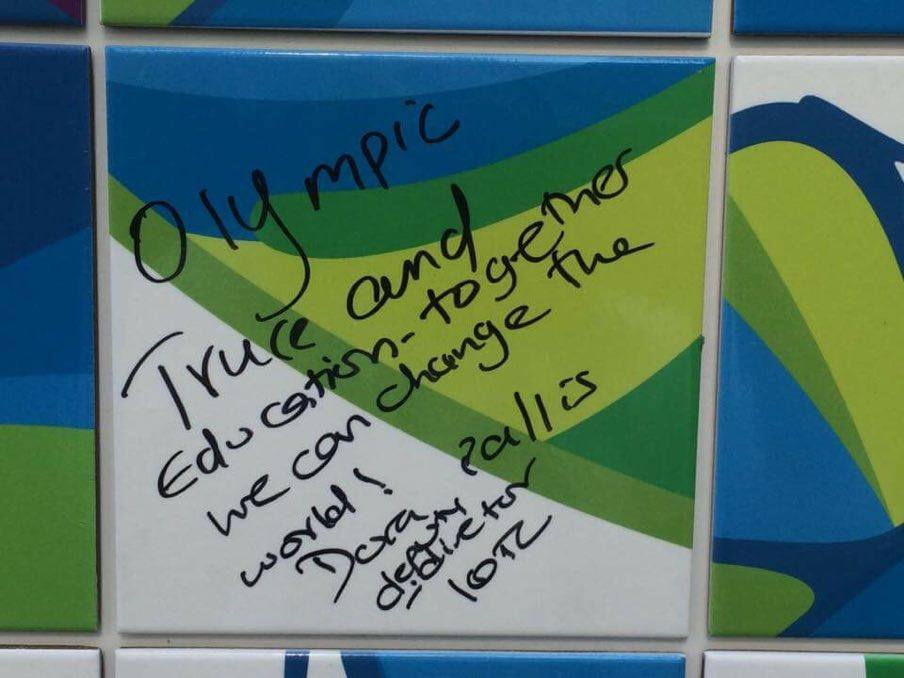 Olympic
Truce and
Education-together
we can change the
world!
Dora Pallis
deputy
director
IOTC